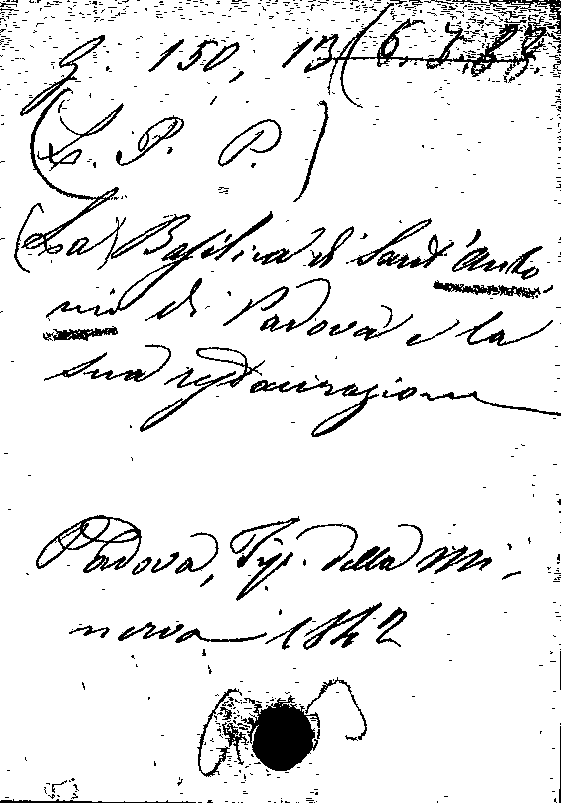 G. 150, 13 (6. I. 22.
(L. P. P.)
(La) Basilica di Sant'Anto-
nio di Padova e la
sua restaurazione
Padova, Tip. della Mi-
nerva 1842